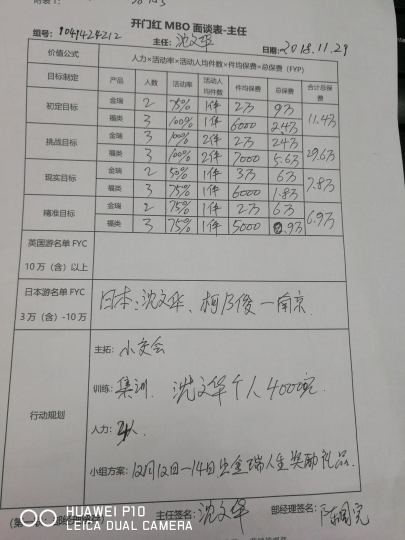 开门红 MBO 面谈表-主任
组号: 9049424212 主任: 沈文华 日期: 2018.11.29
价值公式 人力×活动率×活动人均件数×件均保费×总保费 (FYP)
目标制定 产品 人数 活动率 活动人均件数 件均保费 总保费 合计总保费
初定目标 金瑞 2 75% 1件 2万 9万 11.4万
福类 3 100% 1件 6000 2.4万
挑战目标 金瑞 3 100% 2件 2万 24万 29.6万
福类 3 100% 2件 7000 5.6万
现实目标 金瑞 2 50% 1件 3万 6万 7.8万
福类 3 75% 1件 6000 1.8万
精准目标 金瑞 2 75% 1件 2万 6万 6.9万
福类 3 75% 1件 5000 0.9万
英国游名单 FYC
10 万（含）以上
日本游名单 FYC
3 万（含）-10万
日本: 沈文华、柯乃俊一南京
行动规划
主拓: 小交会
训练: 集训 沈文华个人4000元
人力:
小组方案: 12月12日一14日出金瑞人生奖励礼品.
主任签名: 沈文华 部经理签名:
HUAWEI P10
LEICA DUAL CAMERA